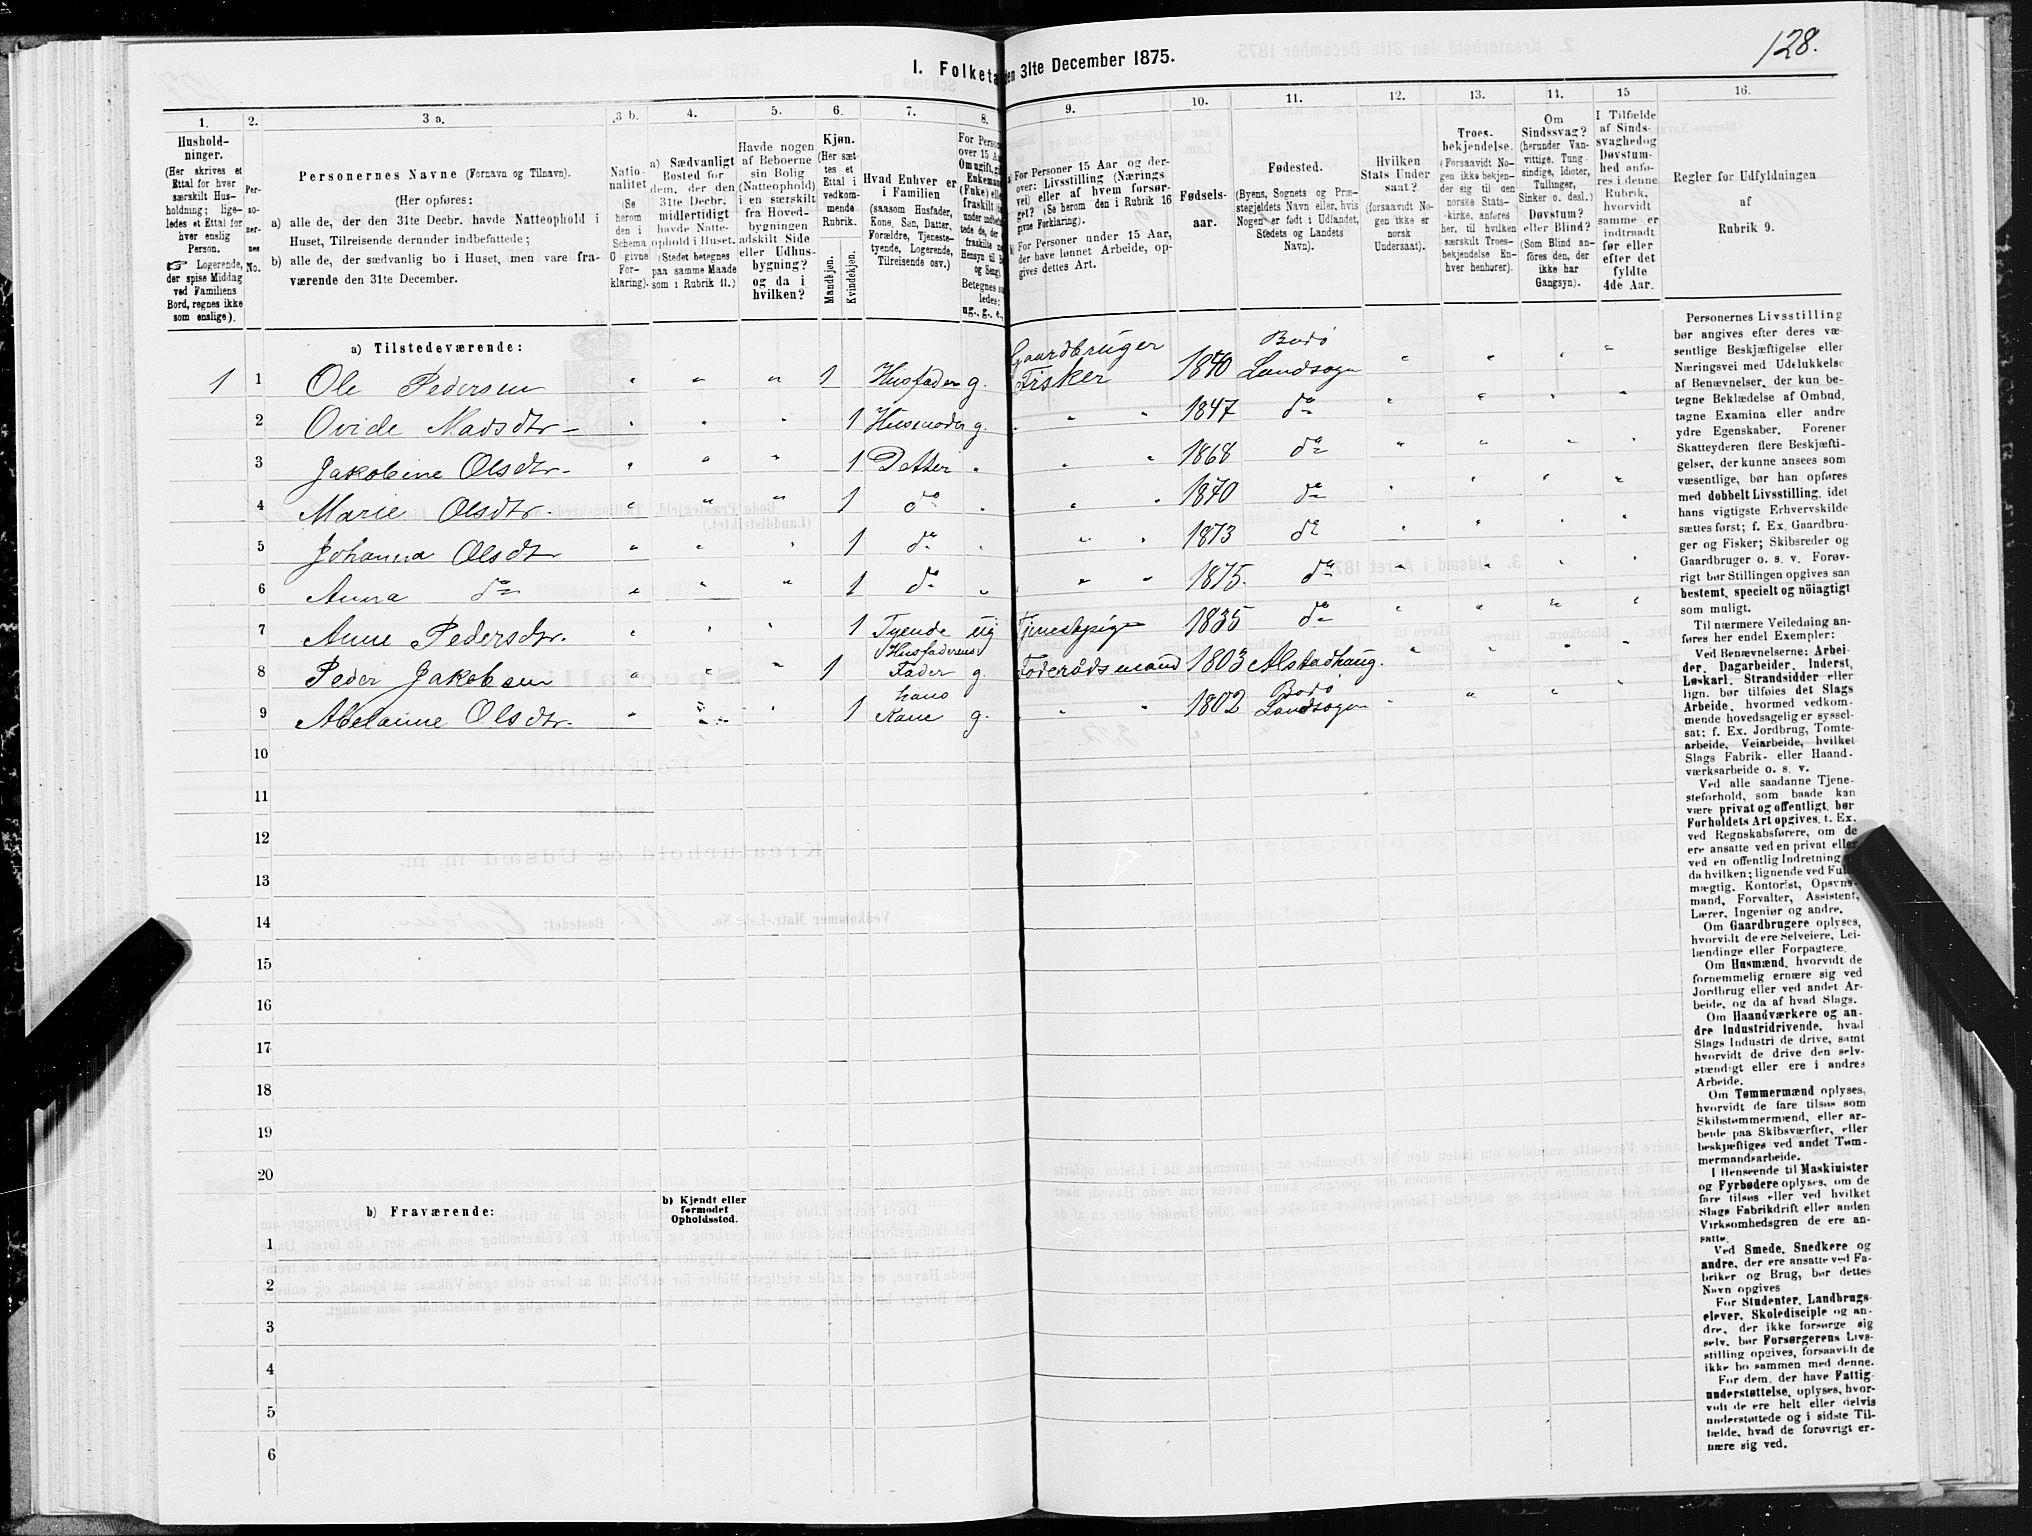 128.
I. Folketa den 31te December 1875.
1. 2. 3 a. 3 b. 4. 5. 6. 7. 8. 9. 10. 11. 12. 13. 14. 15 16.
Hushold-
ninger.
(Her skrives et
Ettal for hver
særskilt Hus-
holdning; lige-
ledes et Ettal for
hver enslig
Person.
☞ Logerende,
der spise Middag
ved Familiens
Bord, regnes ikke
som enslige).
Per-
so-
ner-
nes
No.
Personernes Navne (Fornavn og Tilnavn).
(Her opføres:
a) alle de, der den 31te Decbr. havde Natteophold i
Huset, Tilreisende derunder indbefattede;
b) alle de, der sædvanlig bo i Huset, men vare fra-
værende den 31te December.
Natio-
nalitet
(Se
herom
den i
Schema
O givne
For-
klaring).
a) Sædvanligt
Bosted for
dem, der den
31te Decbr.
midlertidigt
havde Natte-
ophold i Huset.
(Stedet betegnes
paa samme Maade
som i Rubrik 11.)
Havde nogen
af Beboerne
sin Bolig
(Natteophold)
i en særskilt
fra Hoved-
bygningen
adskilt Side
eller Udhus-
bygning?
og da i
hvilken?
Kjøn.
(Her sæt-
tes et
Ettal i
vedkom-
mende
Rubrik.
Mandkjøn.
Kvindekjøn.
Hvad Enhver er
i Familien
(saasom Husfader,
Kone, Søn, Datter,
Forældre, Tjeneste-
tyende, Logerende,
Tilreisende osv.)
For Perso
over 15 Aa
Om ugift, g
Enkeman
(Fnke) elle
fraskilt (
under indbe
tede de, de
fraskilte
Hensyn til B
og Seng).
Betegnes s
ledes:
ug., g., e.,
a) For Personer 15 Aar og der-
over: Livsstilling (Nærings
vei) eller af hvem forsør-
get? (Se herom den i Rubrik 16
givne Forklaring).
b) For Personer under 15 Aar,
der have lønnet Arbeide, op-
gives dettes Art.
Fødsels-
aar.
Fødested.
(Byens, Sognets og Præ-
stegjeldets Navn eller, hvis
Nogen er født i Udlandet,
Stedets og Landets
Navn).
Hvilken
Stats Under
saat?
(forsaavidt No-
gen ikke er
norsk
Undersaat).
Troes-
bekjendelse.
(Forsaavidt No-
gen ikke bekjen-
der sig til den
norske Stats-
kirke, anføres
her, til hvilken
særskilt Troes-
bekjendelse En-
hver henhører).
Om
Sindssvag?
(herunder Van-
vittige, Tung-
sindige, Idioter,
Tullinger,
Sinker o. desl.)
Døvstum?
eller Blind?
(Som Blind an-
føres den, der
ikke har
Gangsyn).
I Tilfælde
af Sinds-
svaghed og
Døvstum-
hed anfø-
res i denne
Rubrik,
hvorvidt
samme er
indtraadt
før eller
efter det
fyldte
4de Aar.
Regler for Udfyldningen
af
Rubrik 9.
a) Tilstedeværende:
1 1 Ole Pedersen " " " 1 Husfader g. Gaardbruger Fisker 1840 Bodø Landsogn " " " "
2 Ovide Madsdtr " " " 1 Husmoder g. " " 1847 do " " " "
3 Jakobine Olsdtr. " " " 1 Datter " " " 1868 do " " " "
4 Marie Olsdtr. " " " 1 do " " " 1870 do " " " "
5 Johanna Olsdtr " " " 1 do " " " 1873 do " " " "
6 Anna do " " " 1 do " " " 1875. do " " " "
7 Anne Pedersdtr. " " " 1 Tyende ug Tjenestpige 1835 do " " " "
8 Peder Jakobsen " " " 1 Husfaderens Fader g. Foderådsmand 1803 Alstadhaug. " " " "
9 Abelanne Olsdtr. " " " 1 hans Kone g. " " 1802 Bodø Landsogn " " " "
10
11
12
13
14
15
16
17
18
19
20
b) Fraværende:
b) Kjendt eller
formodet
Opholdssted.
1
2
3
4
5
6
Personernes Livsstilling
bør angives efter deres væ-
sentlige Beskjæftigelse eller
Næringsvei med Udelukkelse
af Benævnelser, der kun be-
tegne Beklædelse af Ombud,
tagne Examina eller andre
ydre Egenskaber. Forener
Skatteyderen flere Beskjæfti-
gelser, der kunne ansees som
væsentlige, bør han opføres
med dobbelt Livsstilling, idet
hans vigtigste Erhvervskilde
sættes først; f. Ex. Gaardbru-
ger og Fisker; Skibsreder og
Gaardbruger o. s. v. Forøv-
rigt bør Stillingen opgives saa
bestemt, specielt og nöiagtigt
som muligt.
Til nærmere Veiledning an-
føres her endel Exempler:
Ved Benævnelserne: Arbei-
der, Dagarbeider, Inderst,
Løskarl, Strandsidder eller
lign. bør tilføies det Slags
Arbeide, hvormed vedkom-
mende hovedsagelig er syssel-
sat; f. Ex. Jordbrug, Tomte-
arbeide, Veiarbeide, hvilket
Slags Fabrik- eller Haand-
værksarbeide o. s. v.
Ved alle saadanne Tjene-
steforhold, som baade kan
være privat og offentligt, bør
Forholdets Art opgives, t. Ex.
ved Regnskabsførere, om de
ere ansatte ved en privat eller
ved en offentlig Indretning og
da hvilken; lignende ved Ful
mægtig, Kontorist, Opsyns-
mand, Forvalter, Assistent,
Lærer, Ingeniør og andre.
Om Gaardbrugere oplyses,
hvorvidt de ere Selveiere, Lei-
lændinge eller Forpagtere.
Om Husmænd, hvorvidt de
fornemmelig ernære sig ved
Jordbrug eller ved andet Ar-
beide, og da af hvad Slags.
Om Haandværkere og an-
dre Industridrivende, hvad
Slags Industri de drive, samt
hvorvidt de drive den selv-
stændigt eller ere i andres
Arbeide.
Om Tømmermænd oplyses,
hvorvidt de fare tilsøs som
Skibstømmermænd, eller ar-
beide paa Skibsværfter, eller
beskjæftiges ved andet Tøm-
mermandsarbeide.
I Henseende til Maskinister
og Fyrbødere oplyses, om de
fare tilsøs eller ved hvilket
Slags Fabrikdrift eller anden
Virksomhedsgren de ere an-
satte.
Ved Smede, Snedkere og
andre, der ere ansatte ved Fa-
briker og Brug, bør dettes
Navn opgives
For Studenter, Landbrugs-
elever, Skoledisciple og an-
dre, der ikke forsørge sig
selv, bør Forsørgerens Livs-
stilling opgives, forsaavidt de
ikke bo sammen med denne.
For dem, der have Fattig-
understøttelse, oplyses, hvor-
vidt de ere helt eller delvis
understøttede og i sidste Til-
fælde, hvad de forøvrigt er-
nære sig ved.